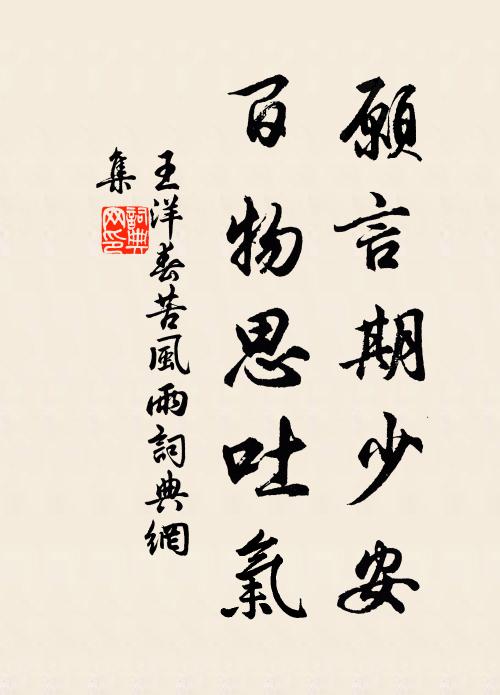 願言期少安
百物思吐氣
王洋春苦風雨詞典網
集
詞典
网印